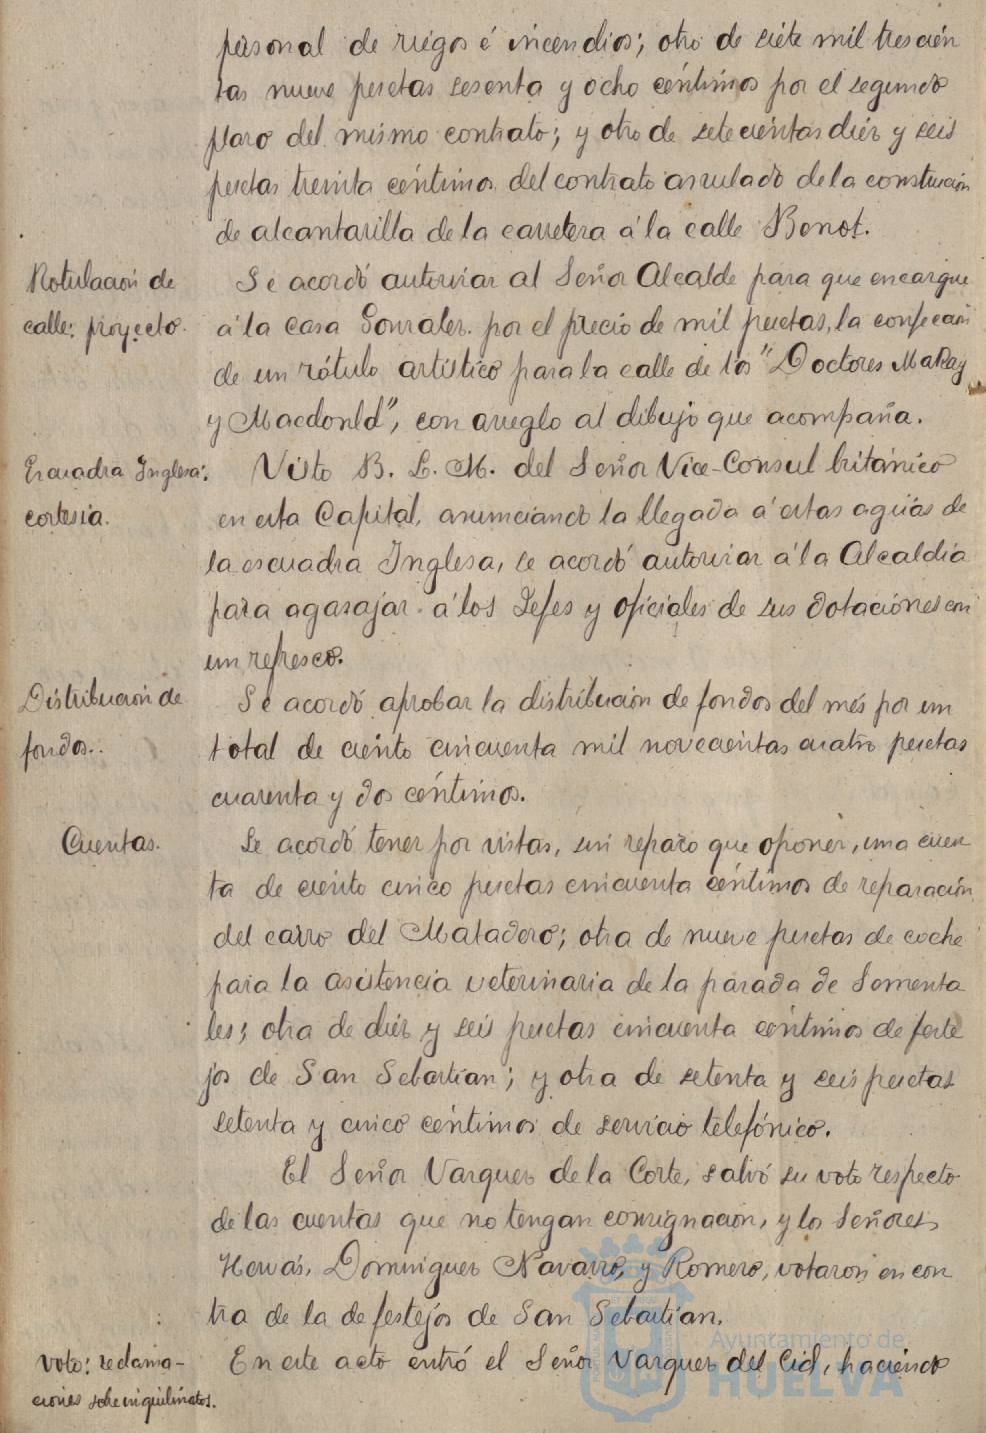 personal de riegos é incendios; otro de siete mil trescien
tas nueve pesetas sesenta y ocho céntimos por el segundo
plazo del mismo contrato; y otro de setecientas diez y seis
pesetas treinta céntimos del contrato anulado de la construcción
de alcantarilla de la carretera á la calle Benot.
Rotulación de
calle: proyecto.
Se acordó autorizar al Señor Alcalde para que encargue
á la casa Gonzalez por el precio de mil pesetas, la confección
de un rótulo artístico para la calle de los "Doctores MaKay
y Macdonld", con arreglo al dibujo que acompaña.
Escuadra Inglesa:
cortesía.
Visto B. L. M. del Señor Vice-Consul británico
en esta Capital, anunciando la llegada á estas aguas de
la escuadra Inglesa, se acordó autorizar á la Alcaldía
para agasajar á los Jefes y oficiales de sus dotaciones con
un refresco.
Distribución de
fondos.
Se acordó aprobar la distribución de fondos del més por un
total de ciento cincuenta mil novecientas cuatro pesetas
cuarenta y dos céntimos.
Cuentas.
Se acordó tener por vistas, sin reparo que oponer, una cuen
ta de ciento cinco pesetas cincuenta céntimos de reparación
del carro del Matadero; otra de nueve pesetas de coche
para la asistencia veterinaria de la parada de Sementa
les; otra de diez y seis pesetas cincuenta céntimos de feste
jos de San Sebastian; y otra de setenta y seis pesetas
setenta y cinco céntimos de servicio telefónico.
El Señor Vazquez de la Corte, salvó su voto respecto
de las cuentas que no tengan consignación, y los Señores
Hervás, Dominguez Navarro, y Romero, votaron en con
tra de la de festejos de San Sebastian.
Voto: reclama-
ciones sobre inquilinatos.
En este acto entró el Señor Vazquez del Cid, haciendo
Ayuntamiento de
HUELVA